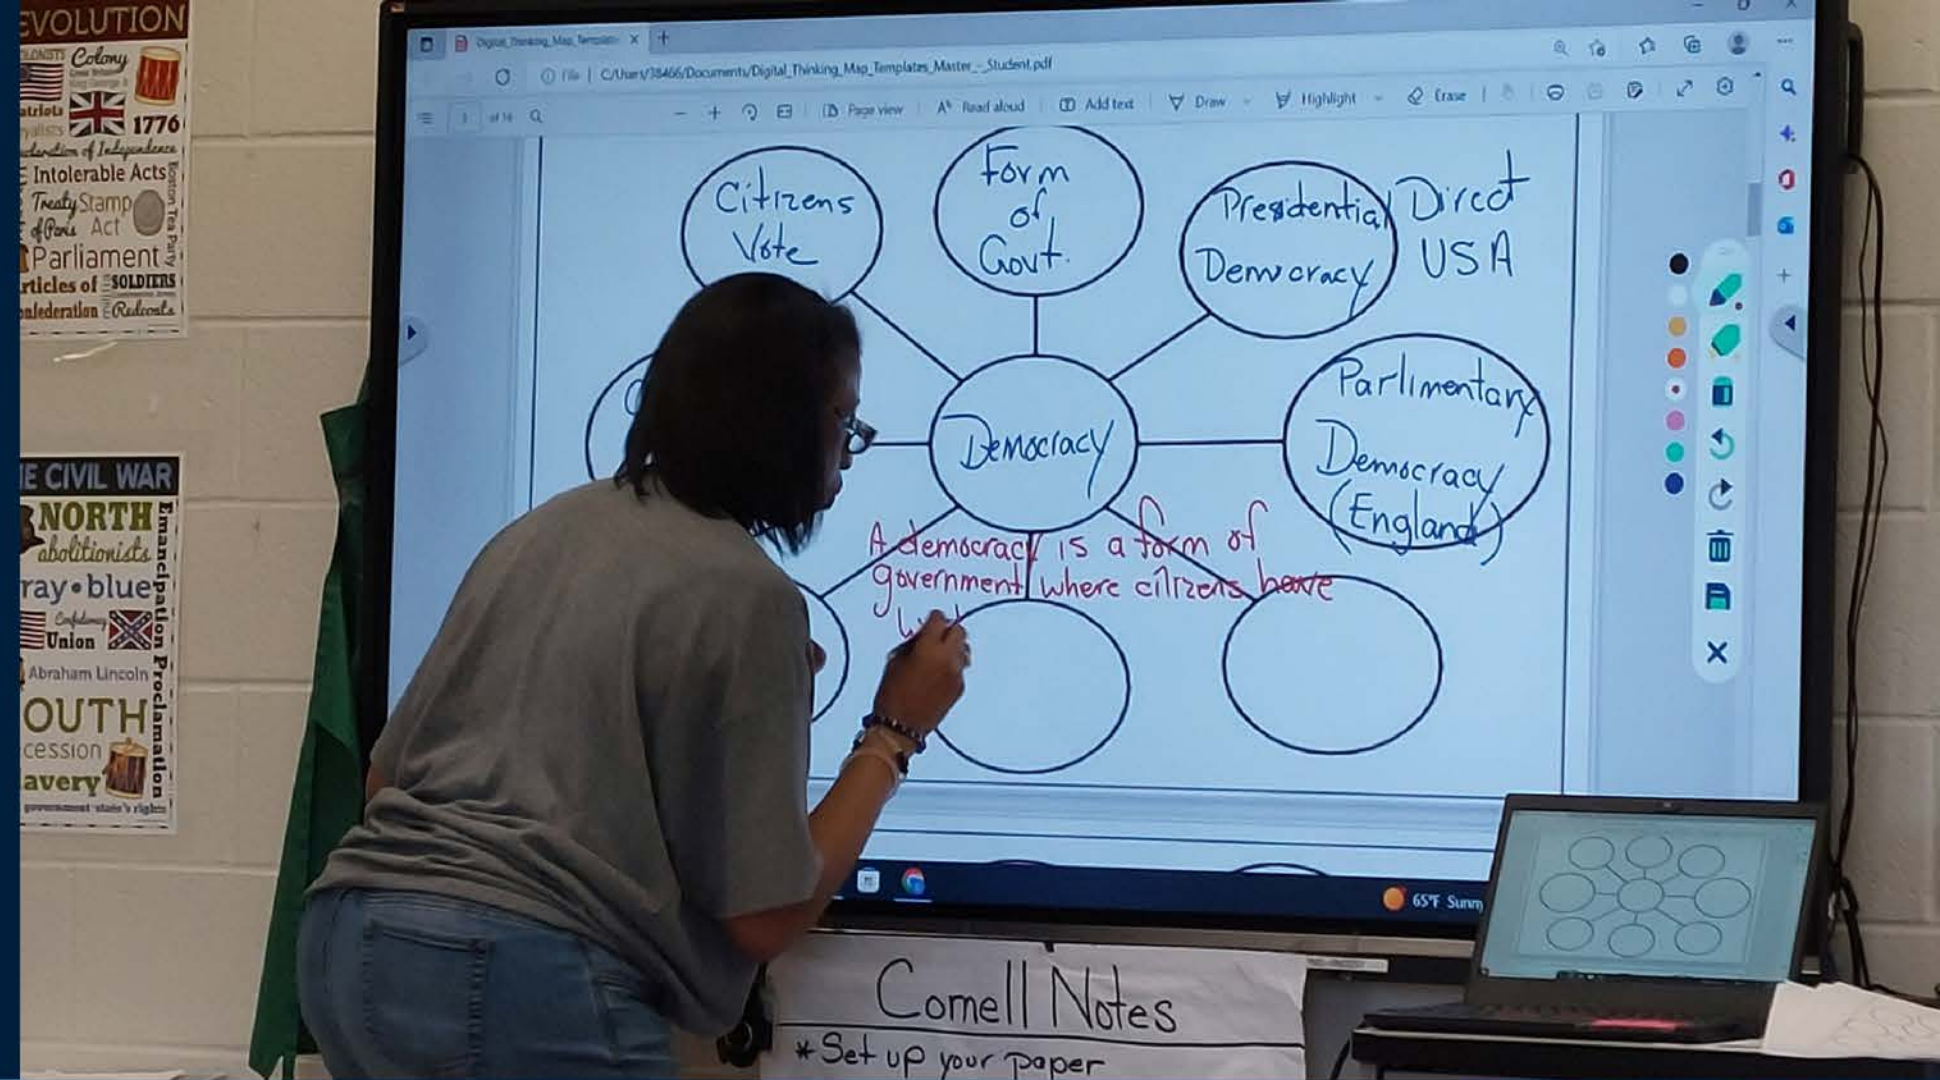 EVOLUTION
Colony
1776
Intolerable Acts
Treaty Stamp
of Paris Act
Boston Tea Party
Parliament
rticles of SOLDIERS
nfederation Redcoats
E CIVIL WAR
NORTH
abolitionists
ray • blue
Union
Abraham Lincoln
OUTH
cession
avery
Emancipation Proclamation
C/Users/38466/Documents/Digital_Thinking_Map_Templates_Master_-_Student.pdf
of 16
Page view
Read aloud
Add text
Draw
Highlight
Erase
Citizens
Vote
Form
of
Govt.
Presidential
Democracy
Direct
USA
Democracy
Parlimentary
Democracy
(England)
A democracy is a form of
government where citizens have
65°F Sunny
Cornell Notes
* Set up your paper